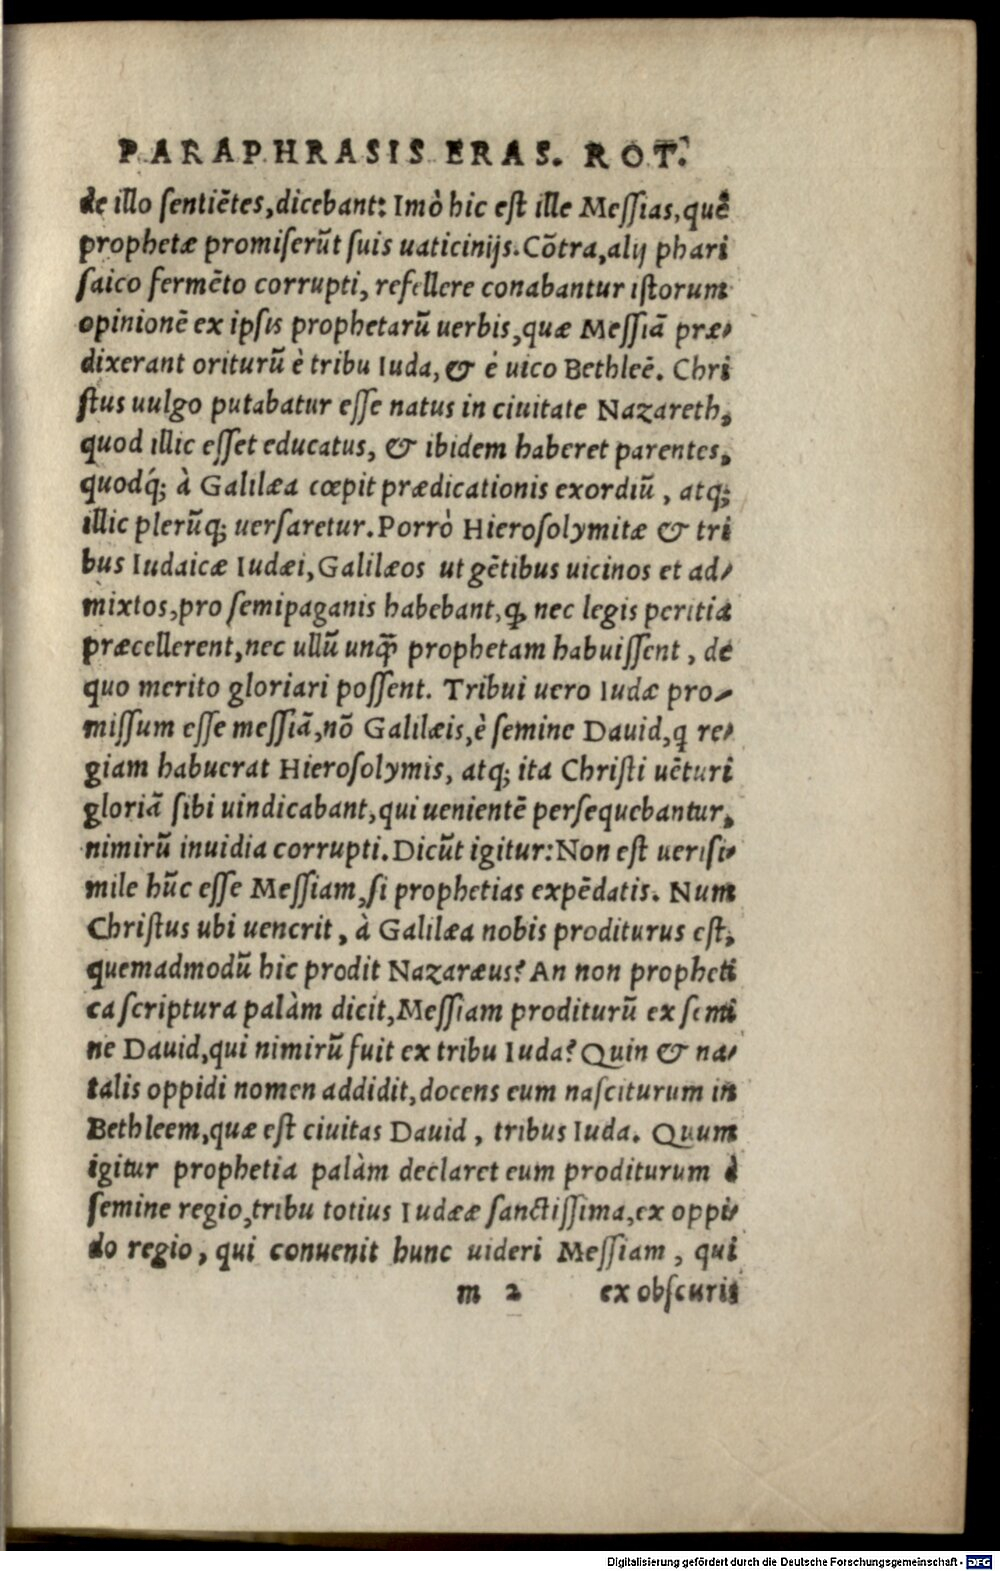 PARAPHRASIS ERAS. ROT.
de illo sentiētes, dicebant: Imò hic est ille Messias, quē
prophetæ promiserūt suis uaticinijs. Cōtra, alij phari
saico fermēto corrupti, refellere conabantur istorum
opinionē ex ipsis prophetarū uerbis, quæ Messiā præ-
dixerant oriturū è tribu Iuda, & è uico Bethleē. Chri
stus uulgo putabatur esse natus in ciuitate Nazareth,
quod illic esset educatus, & ibidem haberet parentes,
quodq́; à Galilæa cœpit prædicationis exordiū, atq;
illic plerūq; uersaretur. Porrò Hierosolymitæ & tri
bus Iudaicæ Iudæi, Galilæos ut gētibus uicinos et ad-
mixtos, pro semipaganis habebant, ꝙ nec legis peritia
præcellerent, nec ullū unq̄ prophetam habuissent, de
quo merito gloriari possent. Tribui uero Iudæ pro-
missum esse messiā, nō Galilæis, è semine Dauid, q re-
giam habuerat Hierosolymis, atq; ita Christi uēturi
gloriā sibi uindicabant, qui uenientē persequebantur,
nimirū inuidia corrupti. Dicūt igitur: Non est uerisi-
mile hūc esse Messiam, si prophetias expēdatis. Num
Christus ubi uenerit, à Galilæa nobis proditurus est,
quemadmodū hic prodit Nazaræus? An non propheti
ca scriptura palàm dicit, Messiam proditurū ex semi
ne Dauid, qui nimirū fuit ex tribu Iuda? Quin & na-
talis oppidi nomen addidit, docens eum nasciturum in
Bethleem, quæ est ciuitas Dauid, tribus Iuda. Quum
igitur prophetia palàm declaret eum proditurum è
semine regio, tribu totius Iudææ sanctissima, ex oppi-
do regio, qui conuenit hunc uideri Messiam, qui
m 2 ex obscuris
Digitalisierung gefördert durch die Deutsche Forschungsgemeinschaft - DFG